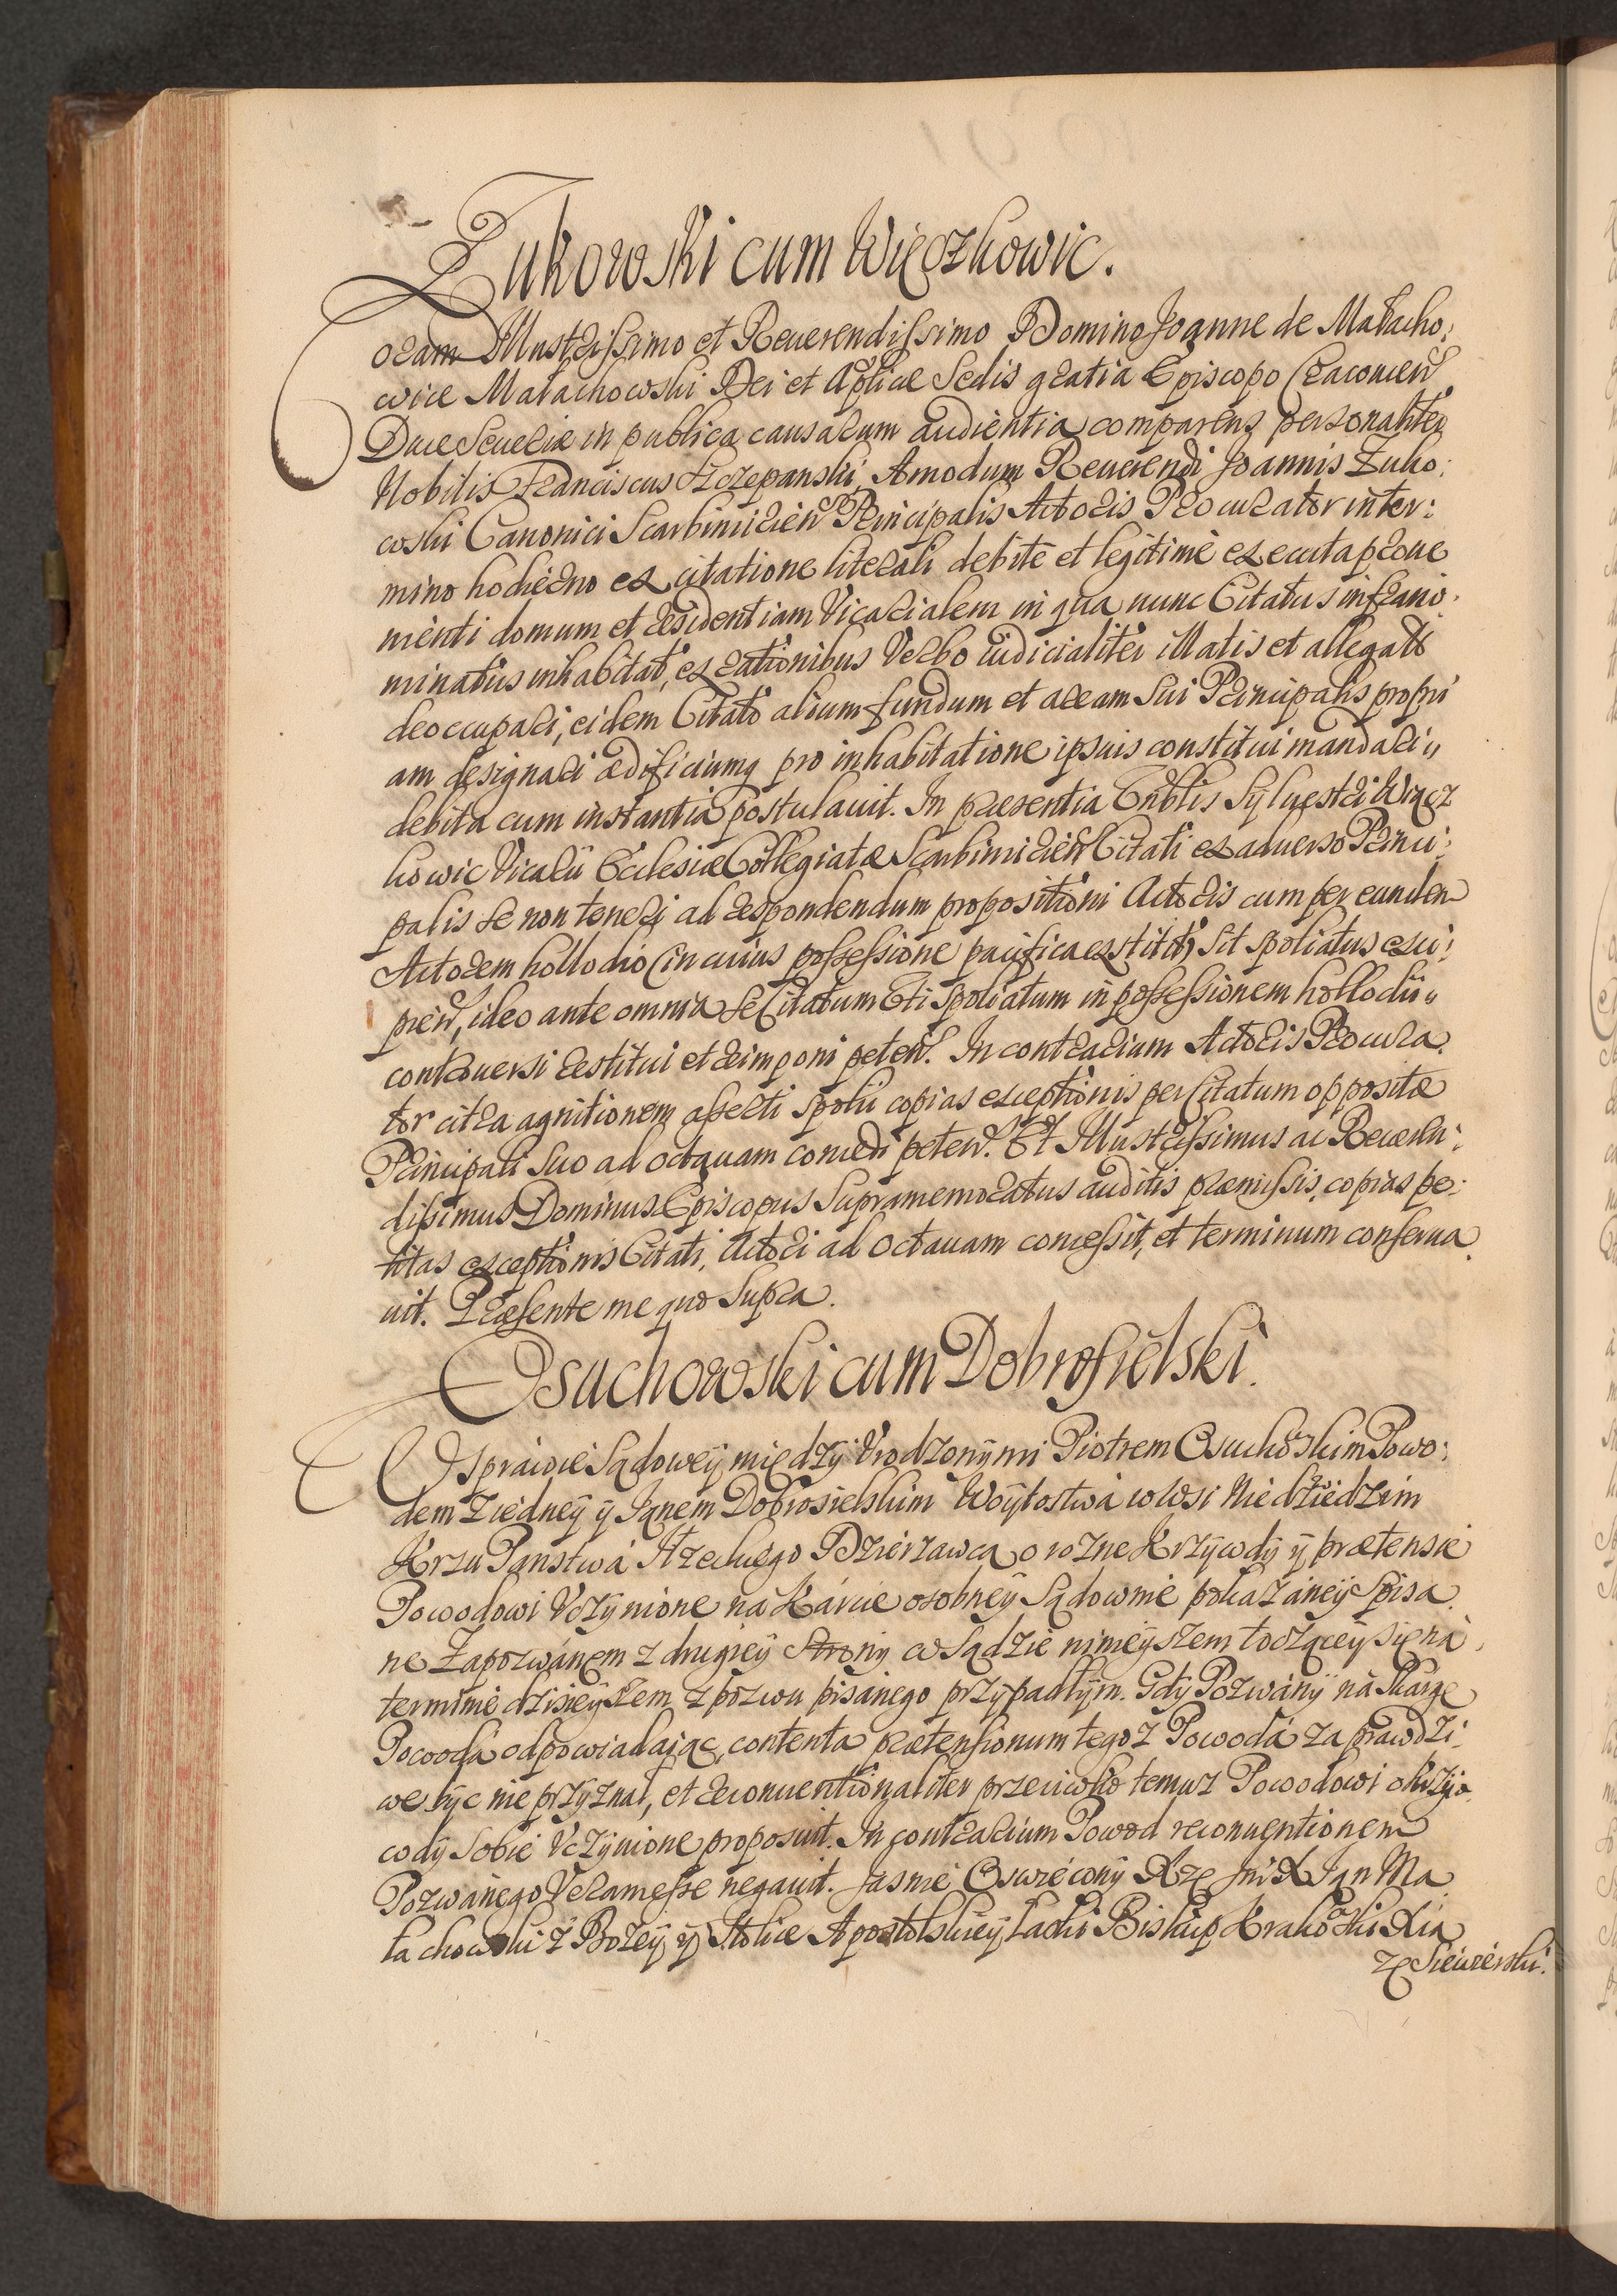 Zukowski cum Więczkowic.
Coram Illustrissimo et Reuerendissimo Domino Joanne de Małacho:
wice Małachowski Dei et Aplicæ Sedis gratia Episcopo Cracouien
Duce Seueriæ in publica causarum audientia comparens personaliter
Nobilis Franciscus Szczepanski, Amodum Reuerendi Joannis Zuko:
wski Canonici Scarbimirien Principalis Actoris Procurator in ter:
mino hodierno ex citatione literali debitè et legitimè executa proue
nienti domum et residentiam Vicarialem in qua nunc Citatus infrano:
minatus inhabitat, ex rationibus Verbo iudicialiter illatis et allegatis
deoccupari, eidem Citato alium fundum et aream sui Principalis propri
am designari ædificiumq pro inhabitatione ipsius constitui mandari
debita cum instantia postulauit. In præsentia Enblis Syluestri Więcz
kowic Vicarii Ecclesiæ Collegiatæ Scarbimirien Citati ex aduerso Princi:
palis se non teneri ad respondendum propositioni Actoris cum per eundem
Actorem hollodio (in cuius possessione pacifica extitit) sit spoliatus exci:
pien, ideo ante omnia se Citatum Uti spoliatum in possessionem hollodii
controuersi restitui et reimponi peten. In contrarium Actoris Procura
tor citra agnitionem asserti spolii copias exceptionis per Citatum oppositæ
Principali suo ad octauam concedi peten. Et Illustrissimus ac Reueren:
dissimus Dominus Episcopus supramemoratus auditis præmissis, copias pe:
titas exceptionis Citati, Actori ad octauam concessit, et terminum conserua
uit. Præsente me quo supra.
Osuchowski cum Dobrosielski.
W sprawie Sądowey między Vrodzonymi Piotrem Osuchoskim Powo:
dem z iedney y Janem Dobrosielskim Woytostwa w wsi Niedzwiedzim
Krzu Panstwa Dzierzawcą o rozne Krzywdy y prætensie
Powodowi Vczynione na Karcie osobney Sądownie pokazaney Spisa
ne Zapozwanem z drugiey Strony w Sądzie ninieyszem toczącey się na
terminie dzisieyszem z pozwu pisanego przypadłym. Gdy Pozwany na skargę
Powoda odpowiadaiąc, contenta prætensionum tegoz Powoda za prawdzi:
we być nie przyznał, et reconuentionaliter przeciwko temuz Powodowi o krzy
wdy sobie Vczynione proposuit. In contrarium Powod reconuentionem
Pozwanego Veram esse negauit. Jasnie Oswiecony Xże Jmć X Jan Ma
łachowski z Bozey y Stolice Apostolskiey łaski Biskup Krakoski Xią
żę Siewierski.